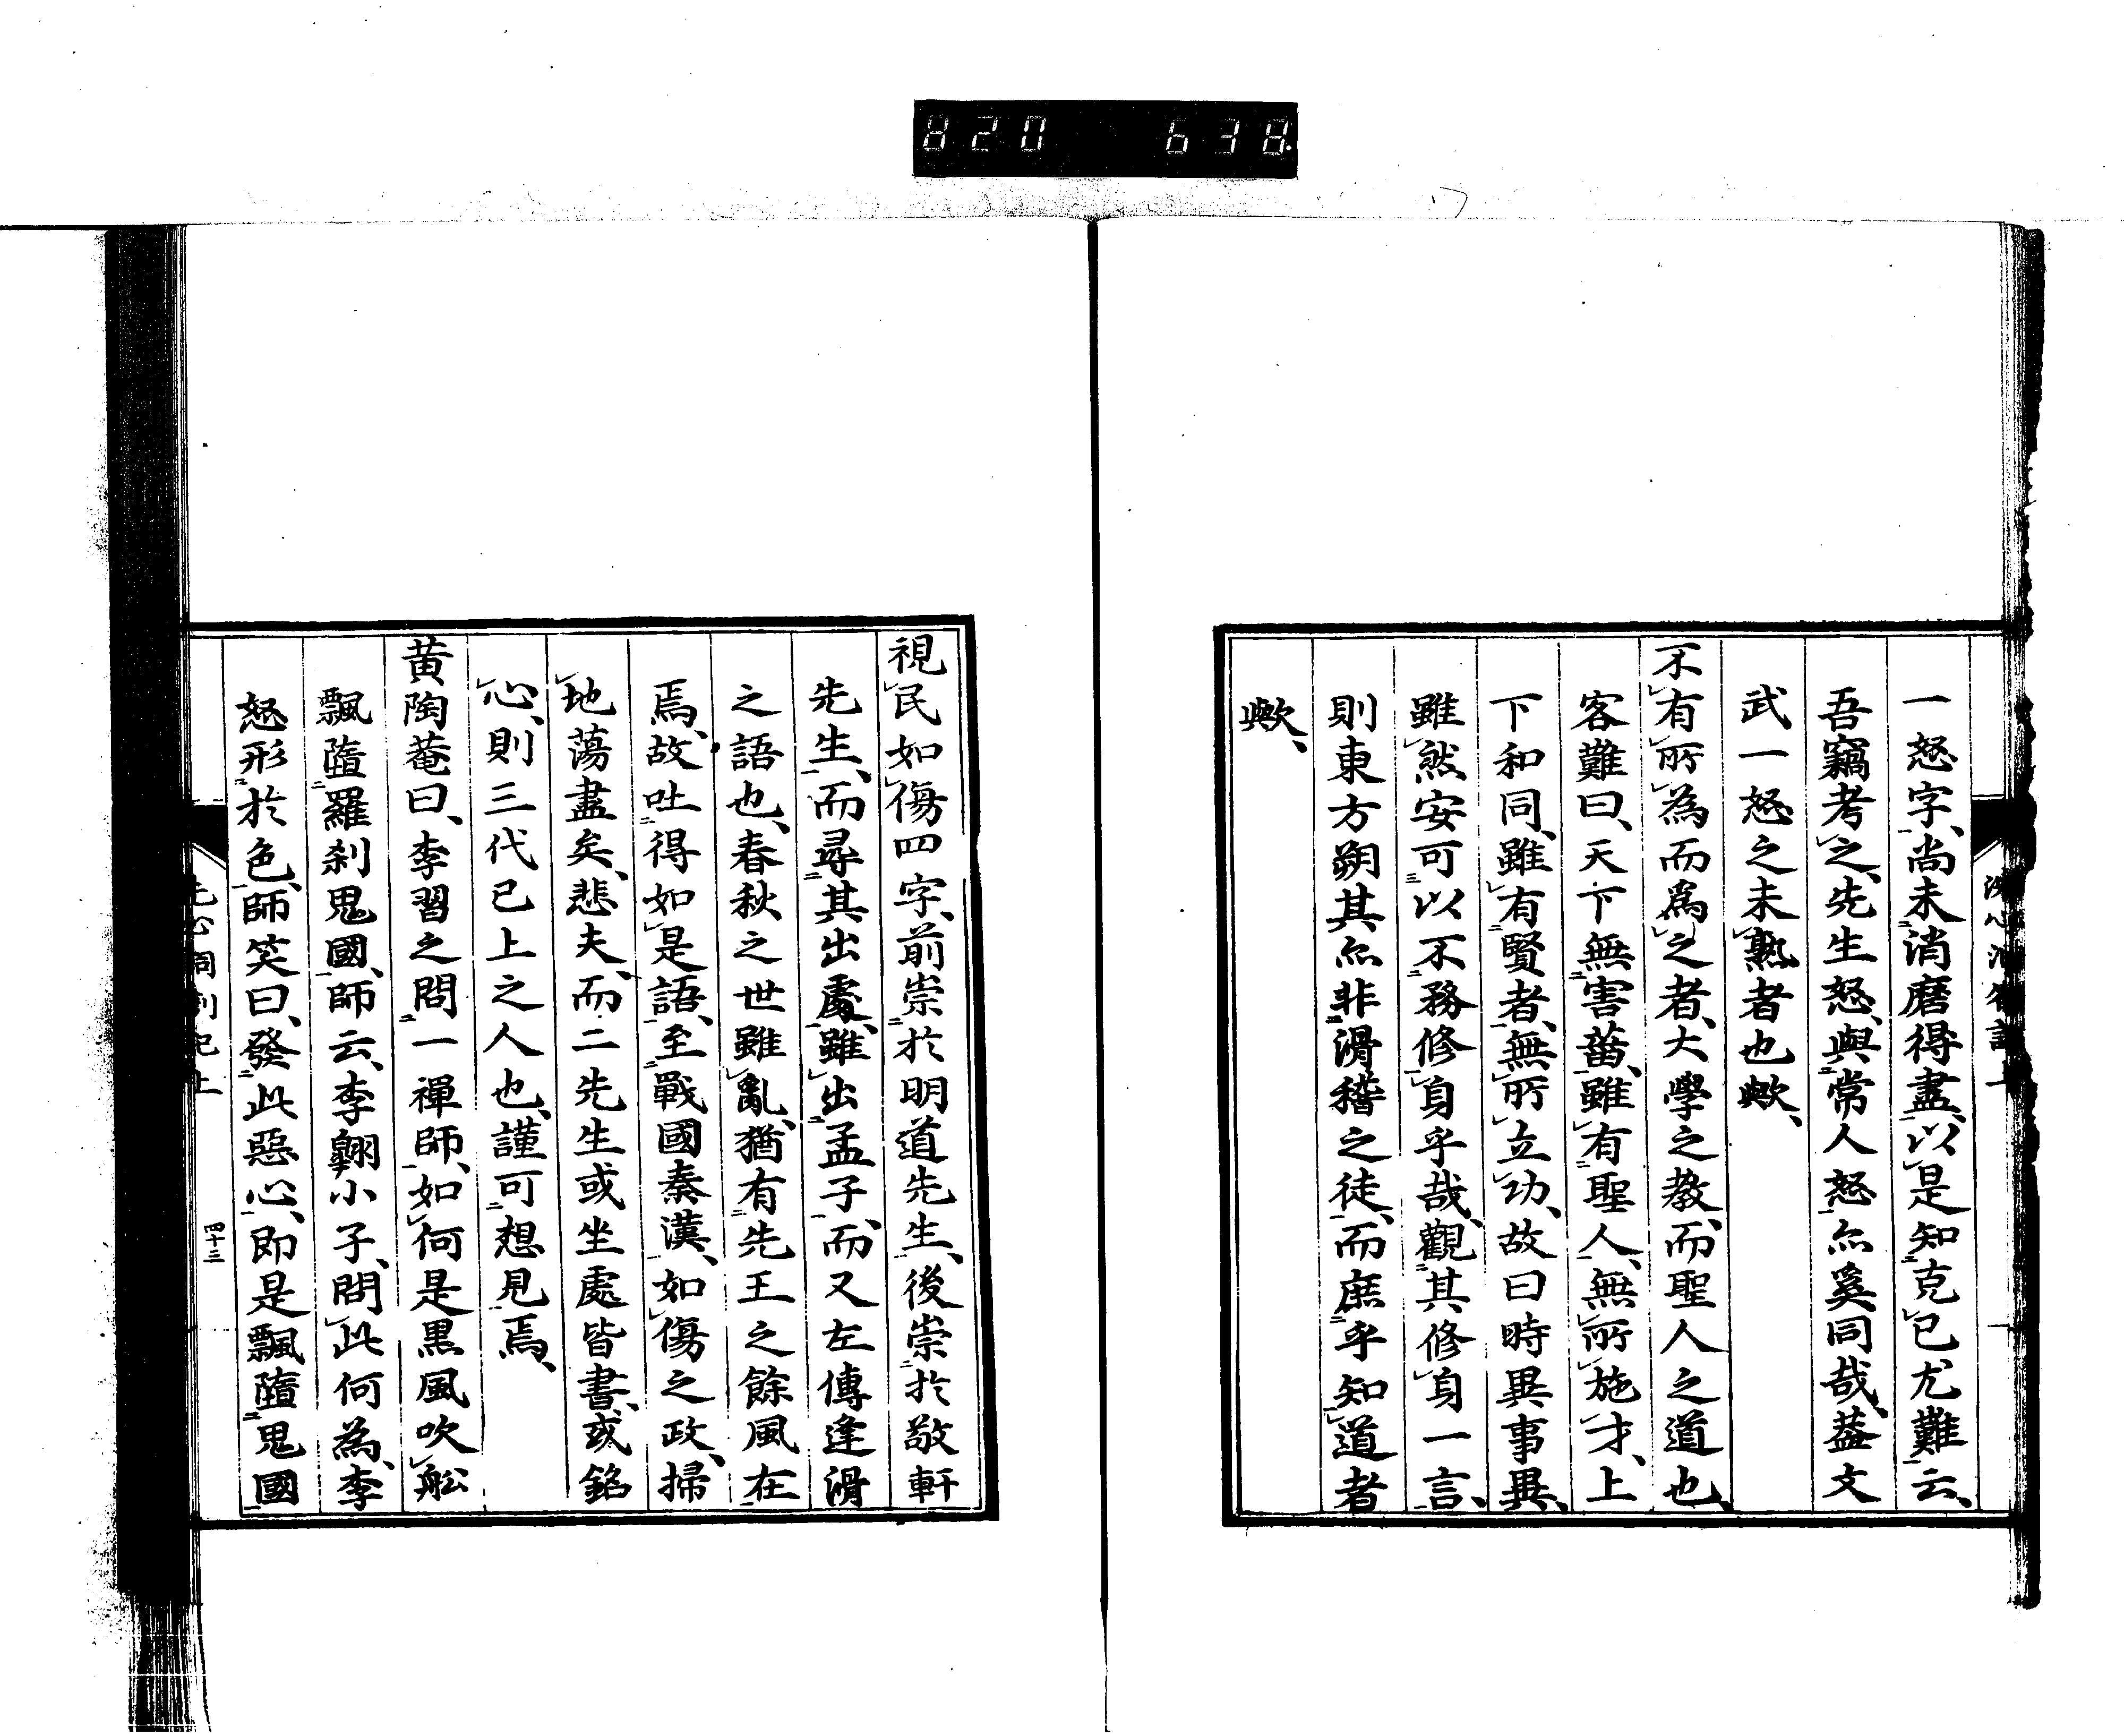 820 638.
洗心洞劄記上
一怒字、尚未消磨得盡、以是知克己尤難云、
吾竊考之、先生怒、與常人怒亦奚同哉、蓋文
武一怒之未熟者也歟、
不有所為而爲之者、大學之教、而聖人之道也、
客難曰、天下無害菑、雖有聖人、無所施才、上
下和同、雖有賢者、無所立功、故曰時異事異、
雖然安可以不務修身乎哉、觀其修身一言、
則東方朔其亦非滑稽之徒、而庶乎知道者
歟、
視民如傷四字、前崇於明道先生、後崇於敬軒
先生、而尋其出處、雖出孟子、而又左傳逢滑
之語也、春秋之世雖亂、猶有先王之餘風在
焉、故吐得如是語、至戰國秦漢、如傷之政、掃
地蕩盡矣、悲夫、而二先生或坐處皆書、或銘
心、則三代已上之人也、謹可想見焉、
黄陶菴曰、李習之問一禪師、如何是黒風吹舩
飄墮羅刹鬼國、師云、李翺小子、問此何為、李
怒形於色、師笑曰、發此惡心、即是飄墮鬼國
洗心洞劄記上
四十三